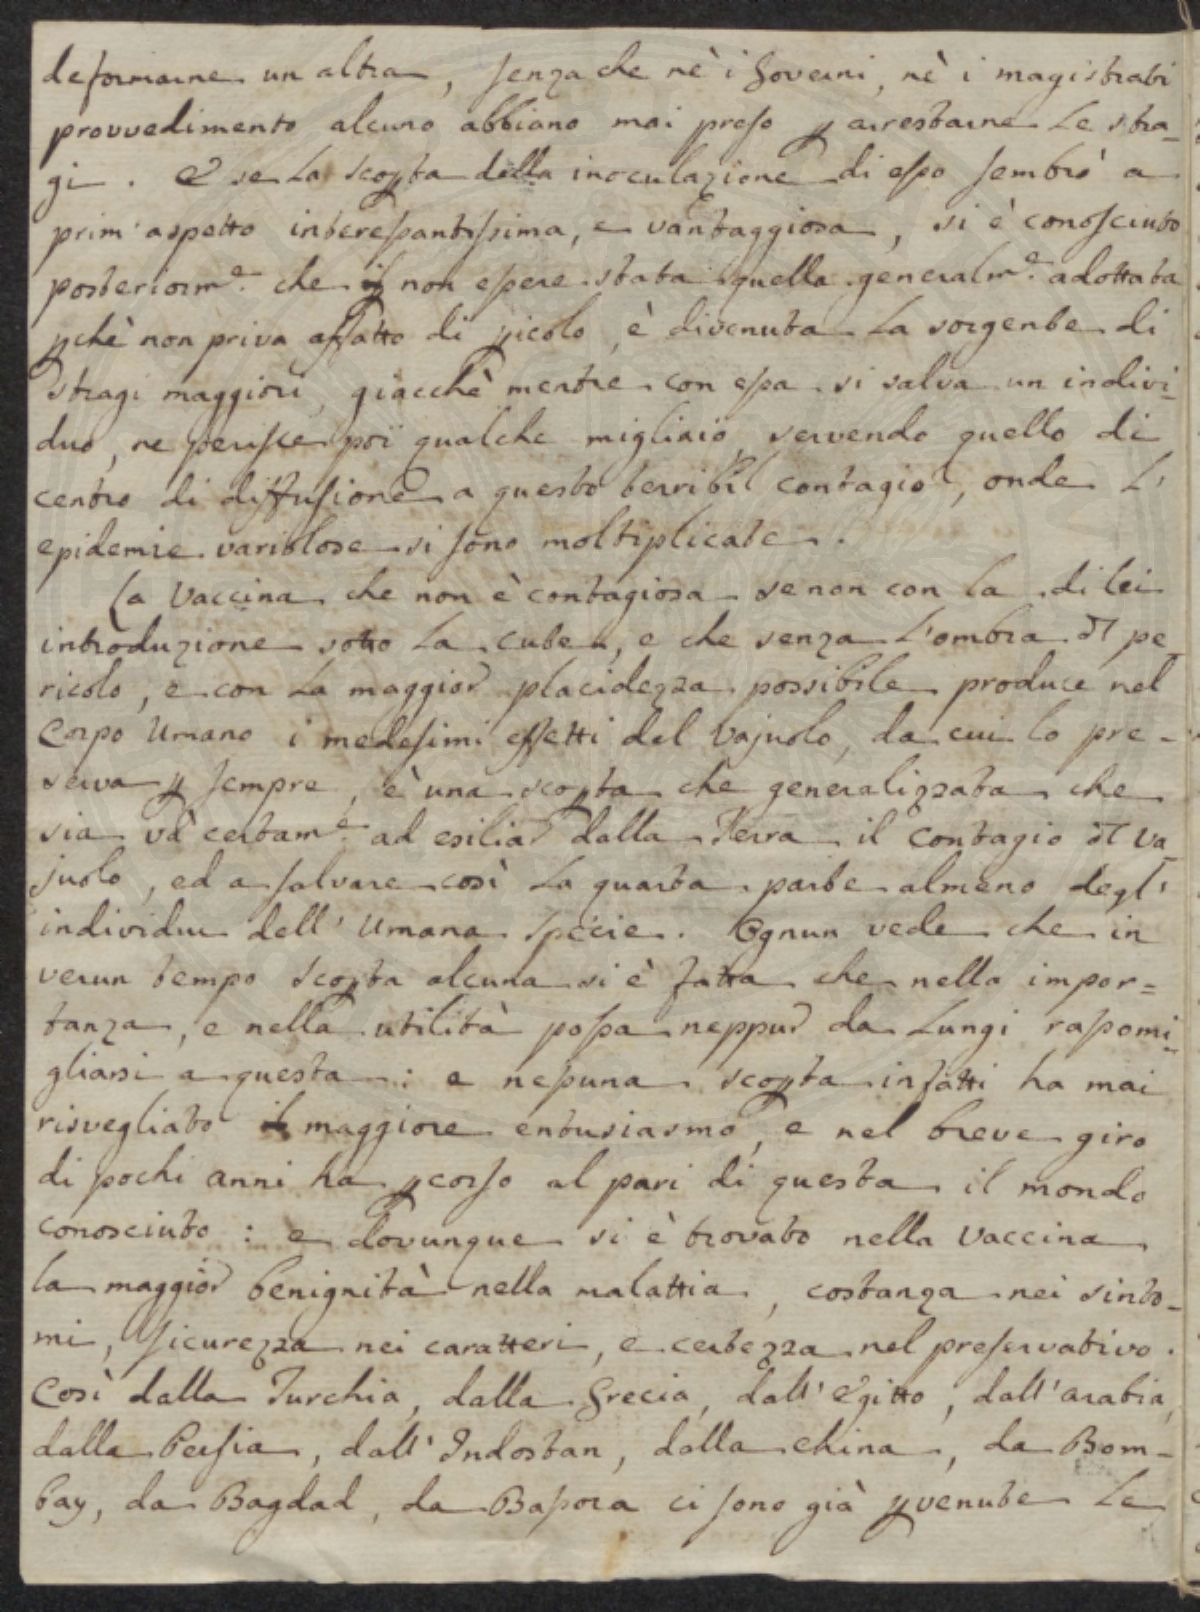 deformarne un altra, senza che nè i Governi, nè i magistrati
provvedimento alcuno abbiano mai preso p arrestarne le stra=
gi. E se la scopta della inoculazione di esso sembrò a
prim' aspetto interessantissima, e vantaggiosa, si è conosciuto
posteriorme. che p non essere stata quella generalme. adottata
pchè non priva affatto di picolo, è divenuta la sorgente di
stragi maggiori, giacchè mentre con essa si salva un indivi=
duo, ne perisce poi qualche migliaio servendo quello di
centro di diffusione a questo terribil contagio, onde l'
epidemie variolose si sono moltiplicate.
La Vaccina che non è contagiosa se non con la di lei
introduzione sotto la cute, e che senza l'ombra di pe=
ricolo, e con la maggior placidezza possibile produce nel
Corpo Umano i medesimi effetti del Vajuolo, da cui lo pre=
serva p sempre, è una scopta che generalizzata che
sia và certame. ad esiliar dalla Terra il contagio di Va=
juolo, ed a salvare così la quarta parte almeno degl'
individui dell' Umana Specie. Ognun vede che in
verun tempo scopta alcuna si è fatta che nella impor=
tanza, e nella utilità possa neppur da lungi rassomi=
gliarsi a questa: e nessuna scopta infatti ha mai
risvegliato maggiore entusiasmo, e nel breve giro
di pochi anni ha pcorso al pari di questa il mondo
conosciuto: e dovunque si è trovato nella Vaccina
la maggior benignità nella malattia, costanza nei sinto=
mi, sicurezza nei caratteri, e certezza nel preservativo.
Così dalla Turchia, dalla Grecia, dall' Egitto, dall' arabia,
dalla Persia, dall' Indostan, dalla China, da Bom=
bay, da Bagdad, da Bassora ci sono già pvenute le